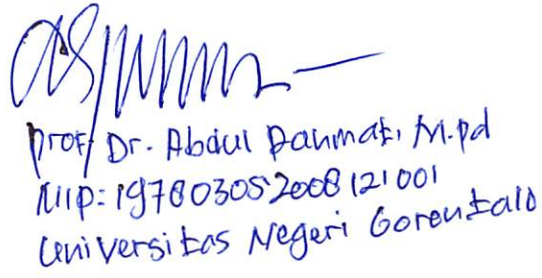 Prof. Dr. Abdul Rahmat, M.pd
NIP: 197603052008121001
Universitas Negeri Gorontalo